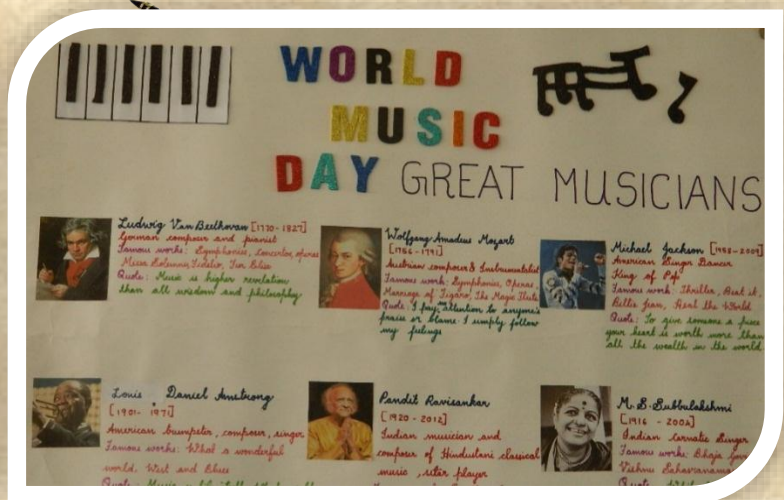 WORLD
MUSIC
DAY GREAT MUSICIANS
Ludwig Van Beethovan [1770-1827]
German composer and pianist
Famous works: Symphonies, Concertos, operas
Missa Solemnis, Fidelio, Fur Elise
Quote: Music is higher revelation
than all wisdom and philosophy
Wolfgang Amadeus Mozart
[1756-1791]
Austrian composer & Instrumentalist
Famous work: Symphonies, Operas,
Marriage of Figaro, The Magic Flute
Quote: I pay attention to anyone's
praise or blame. I simply follow
my feelings
Michael Jackson [1958-2009]
American Singer Dancer
King of Pop
Famous work: Thriller, Beat it,
Billie Jean, Heal the World
Quote: To give someone a piece
your heart is worth more than
all the wealth in the world
Louis Daniel Amstrong
[1901-1971]
American trumpeter, composer, singer
Famous works: What a wonderful
world, West end Blues
Quote: Music
Pandit Ravisankar
[1920-2012]
Indian musician and
composer of Hindustani classical
music, sitar player
M.S. Subbulakshmi
[1916-2004]
Indian Carnatic Singer
Famous works: Bhaja
Vishnu Sahasranama
Quote: